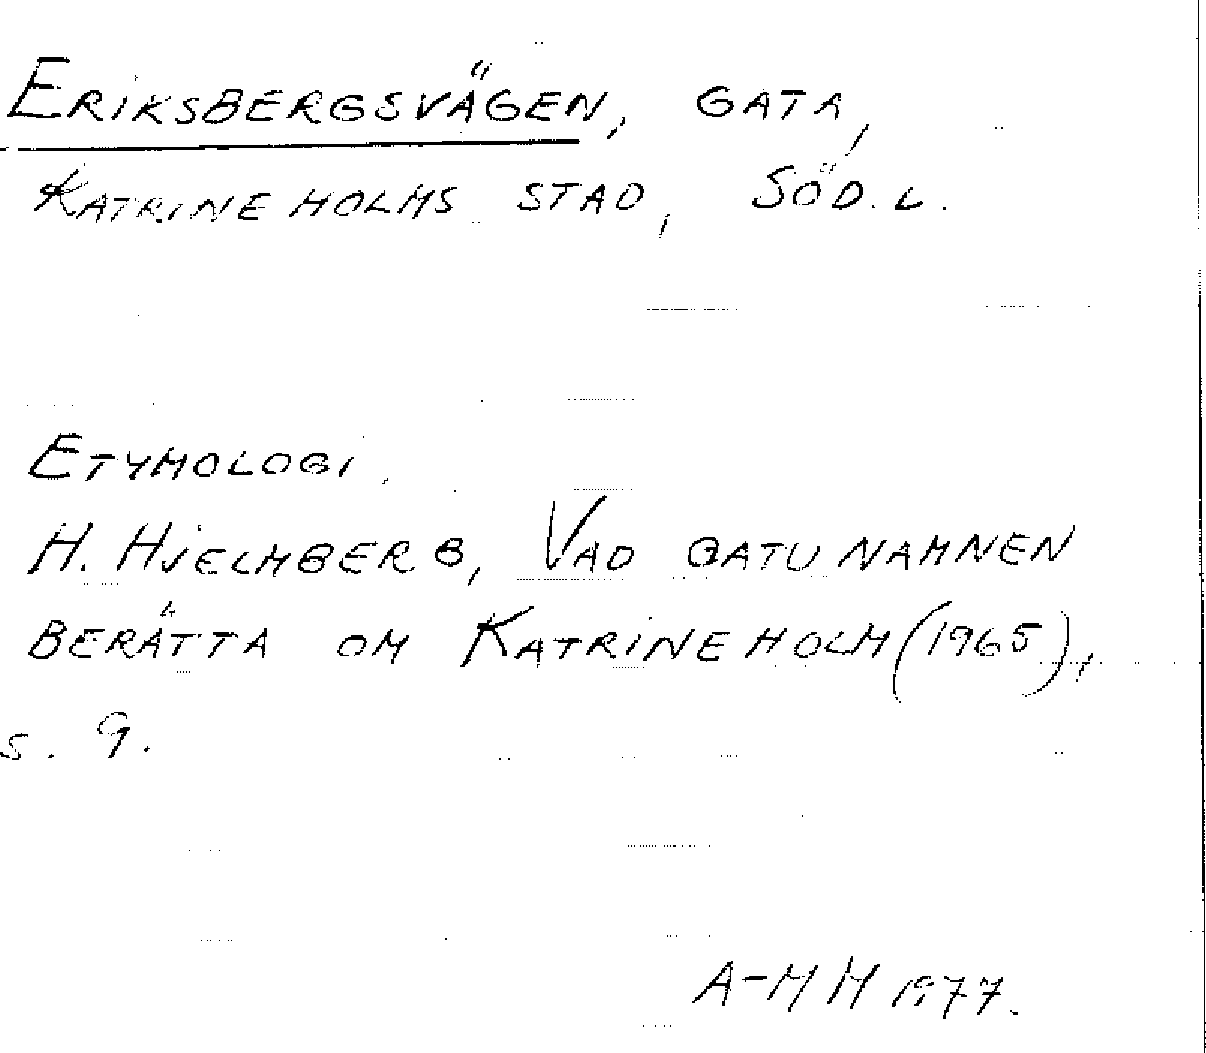 ERIKSBERGSVÄGEN, GATA,
KATRINEHOLMS STAD, SÖD. L.
ETYMOLOGI.
H. HJELMBERG, VAD GATUNAMNEN
BERÄTTA OM KATRINEHOLM (1965),
S. 9.
A-MH 1977.